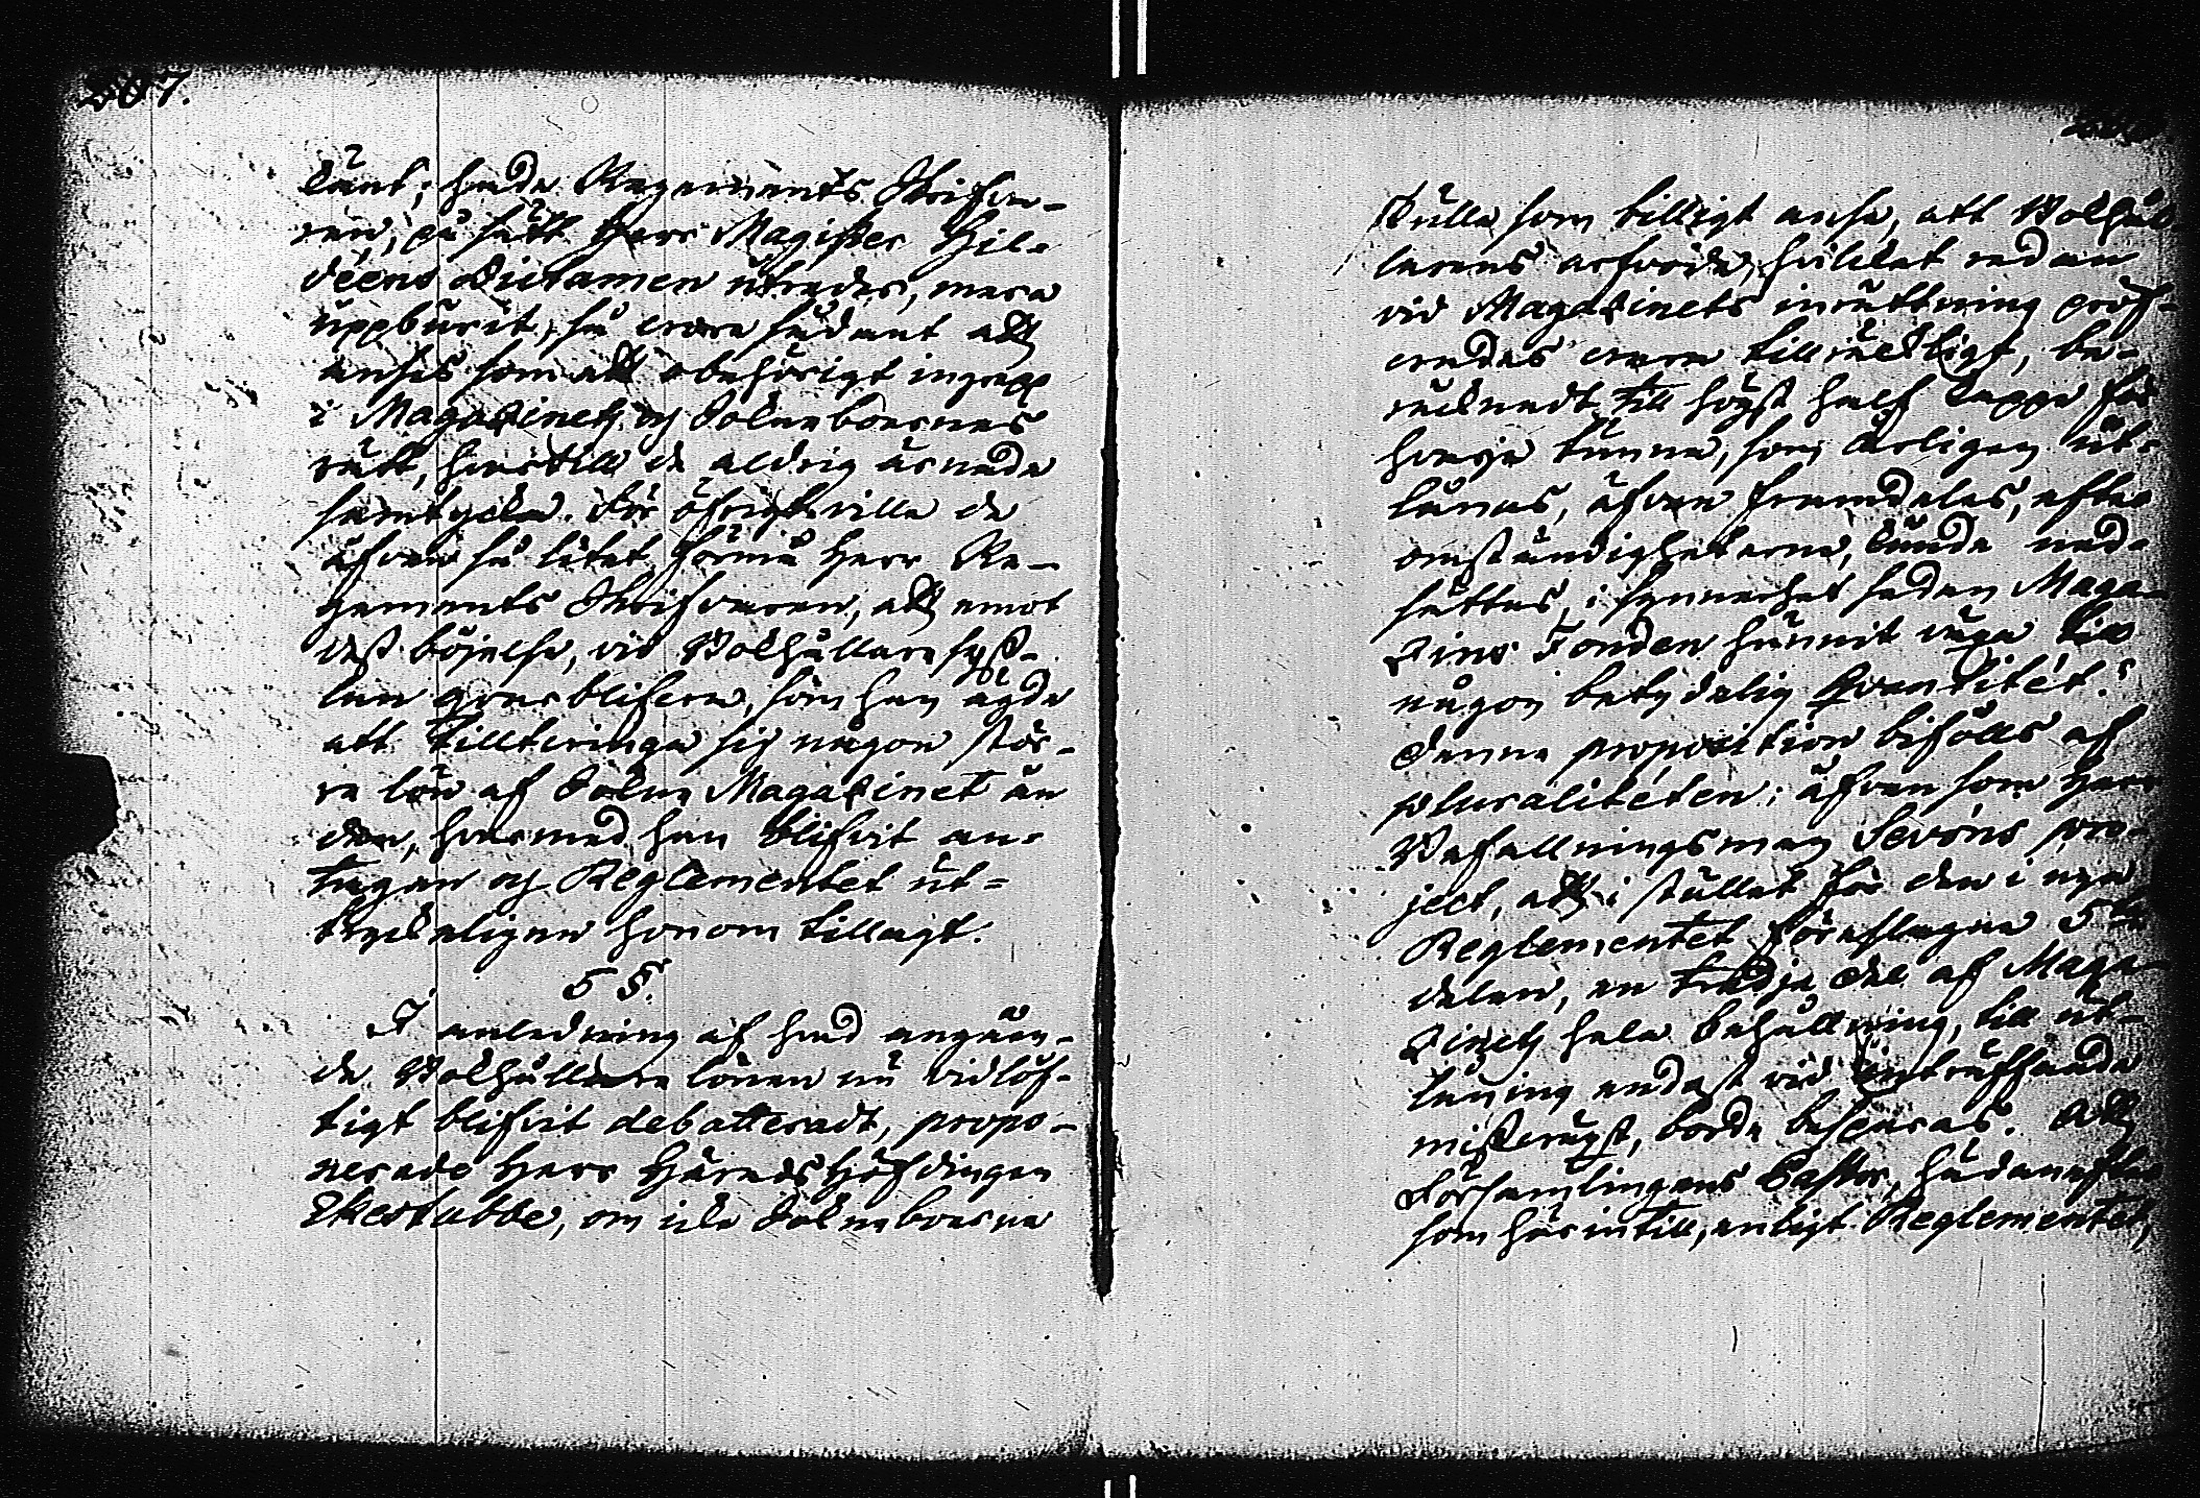 207.
länt; hade Regements Skrifva-
ren, på sätt Herr Magister Hil-
déens Dictamen utreder, mera
uppburit, så vore sådant att
anses som ett obehörigt ingrepp
i Magazinets och Sokneboernes
rätt, hvartill de aldrig ärnade
samtycka. För öfrigt ville de
äfven så litet förmå Herr Re-
gements Skrifvaren, att emot
dess böjelse, vid Bokhållare syss-
lan qvarblifva, som han ägde
att tilltvinga sig någon stör-
re lön af Sokne Magazinet än
den, hvarmed han blifvit an-
tagen och Reglementet ut-
tryckeligen honom tillagt.
5 §.
I anledning af hvad angåen-
de Bokhållare lönen nu vidlöf-
tigt blifvit debatteradt, propo-
nerade Herr Härads Höfdingen
Ekestubbe, om icke Sokneboerne
skulle som billigt anse, att Bokhål-
larens arfvode, hvilket redan
vid Magazinets inrättning pröf-
vades vara tillräckligt, be-
räknadt till högst half kappe för
hvarje tunna, som årligen ut-
lånas, äfven framdeles, efter
omständigheterne, kunde ned-
sättas, i synnerhet sedan Maga-
zins Fonden hunnit växa till
någon betydelig Qvantitét?
Denna proposition bifölls af
pluralitéten; äfven som Herr
Befallningsman Seróns pro-
ject, att i stället för den i nya
Reglementet föreslagne 5te
delen, en tredje del af Maga-
zinets hela behållning, till ut-
låning endast vid inträffande
missväxt, borde besparas. Att
Församlingens Pastor, hädanefter
som här intill, enligt Reglementet,